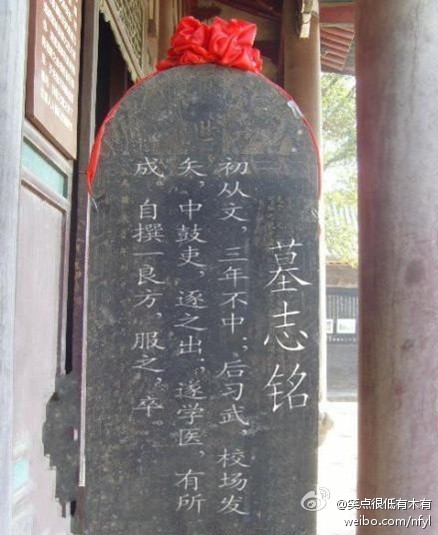 墓志铭
初从文，三年不中；后习武，校场发
矢，中鼓吏，逐之出；遂学医，有所
成。自撰一良方，服之，卒。
@笑点很低有木有
weibo.com/nfyl